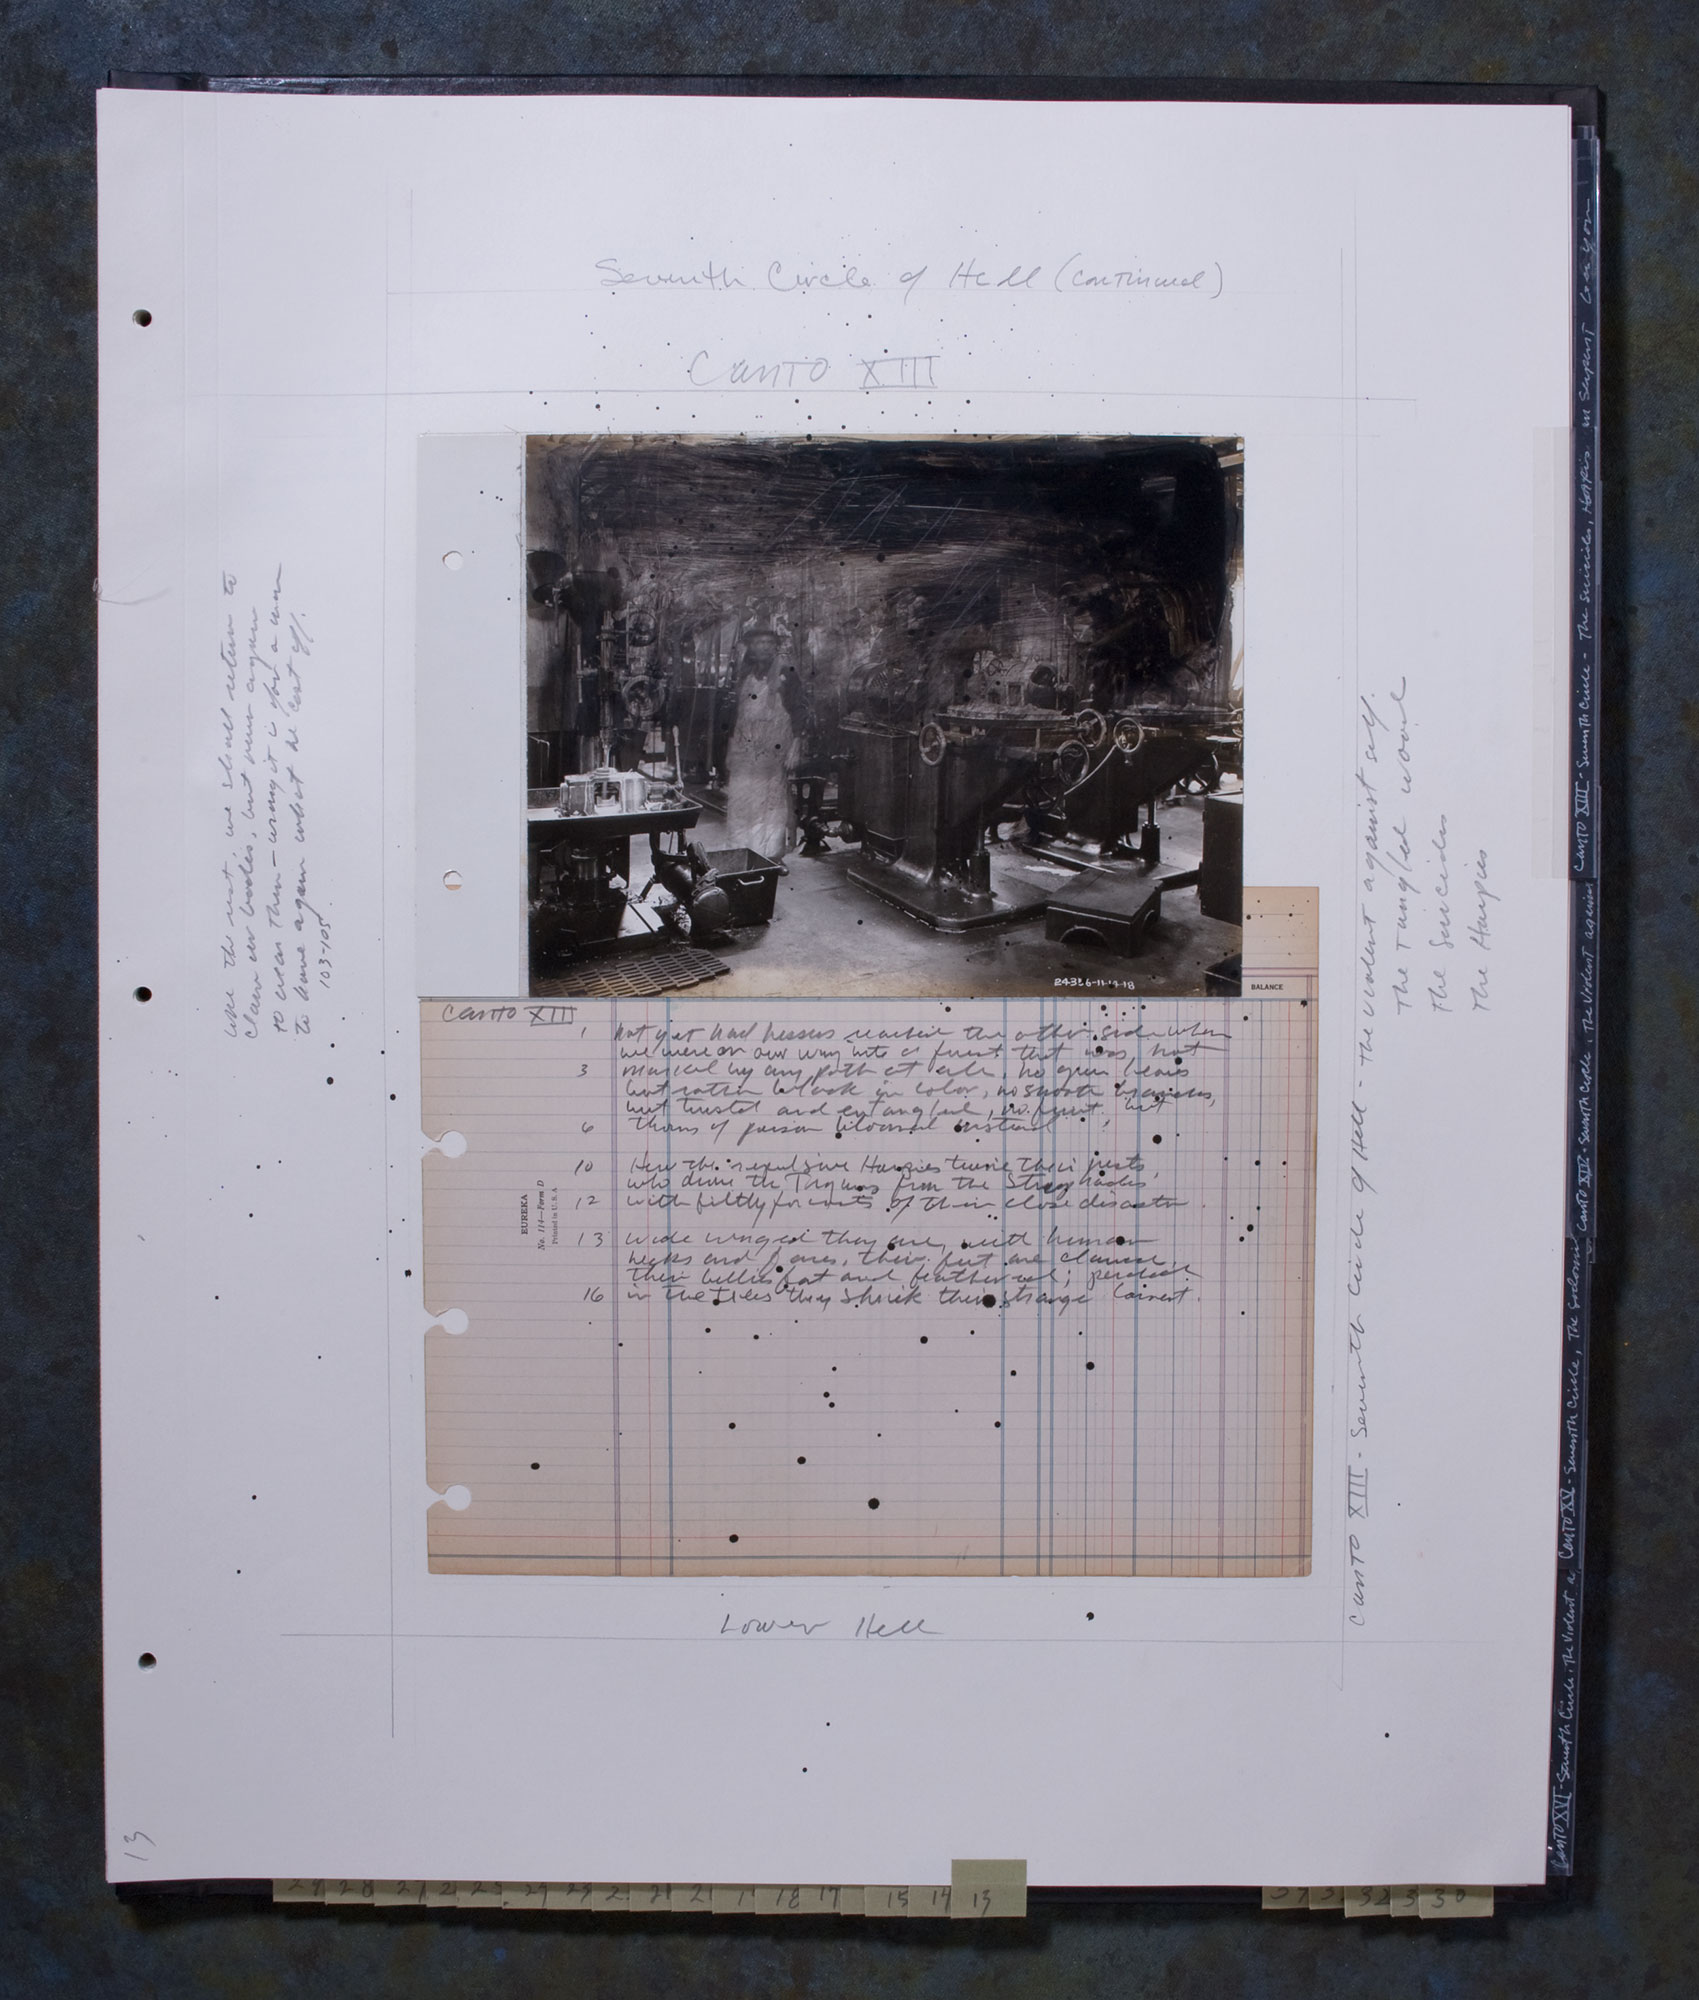 Seventh Circle of Hell (continued)
Canto XIII
Like the rest, we shall return to
claim our bodies, but never again
to wear them – wrong it is for a man
to have again what he cast off.
103-105
24386-11-19-18
BALANCE
Canto XIII
1 Not yet had Nessus reached the other side when
we were on our way into a forest that was not
3 marked by any path at all, no green leaves
but rather black in color, no smooth branches,
but twisted and entangled, no fruit but
6 thorns of poison bloomed instead
10 Here the repulsive Harpies twine their nests,
who drove the Trojans from the Strophades
12 with filthy forecasts of their close disaster.
13 Wide winged they are, with human
necks and faces, their feet are clawed
their bellies fat and feathered; perched
16 in the trees they shriek their strange lament.
EUREKA
No. 114—Form D
Printed in U.S.A
Lower Hell
Canto XIII - Seventh Circle of Hell - The violent against self.
The Tangled Wood
The Suicides
The Harpies
Canto XIII - Seventh Circle - The suicides, Harpies.
Canto XIV - Seventh Circle, the violent against
Canto XV - Seventh Circle, The Sodomi
Canto XVI - Seventh Circle, the violent a
13
28 27 18 17 15 14 13
32 30